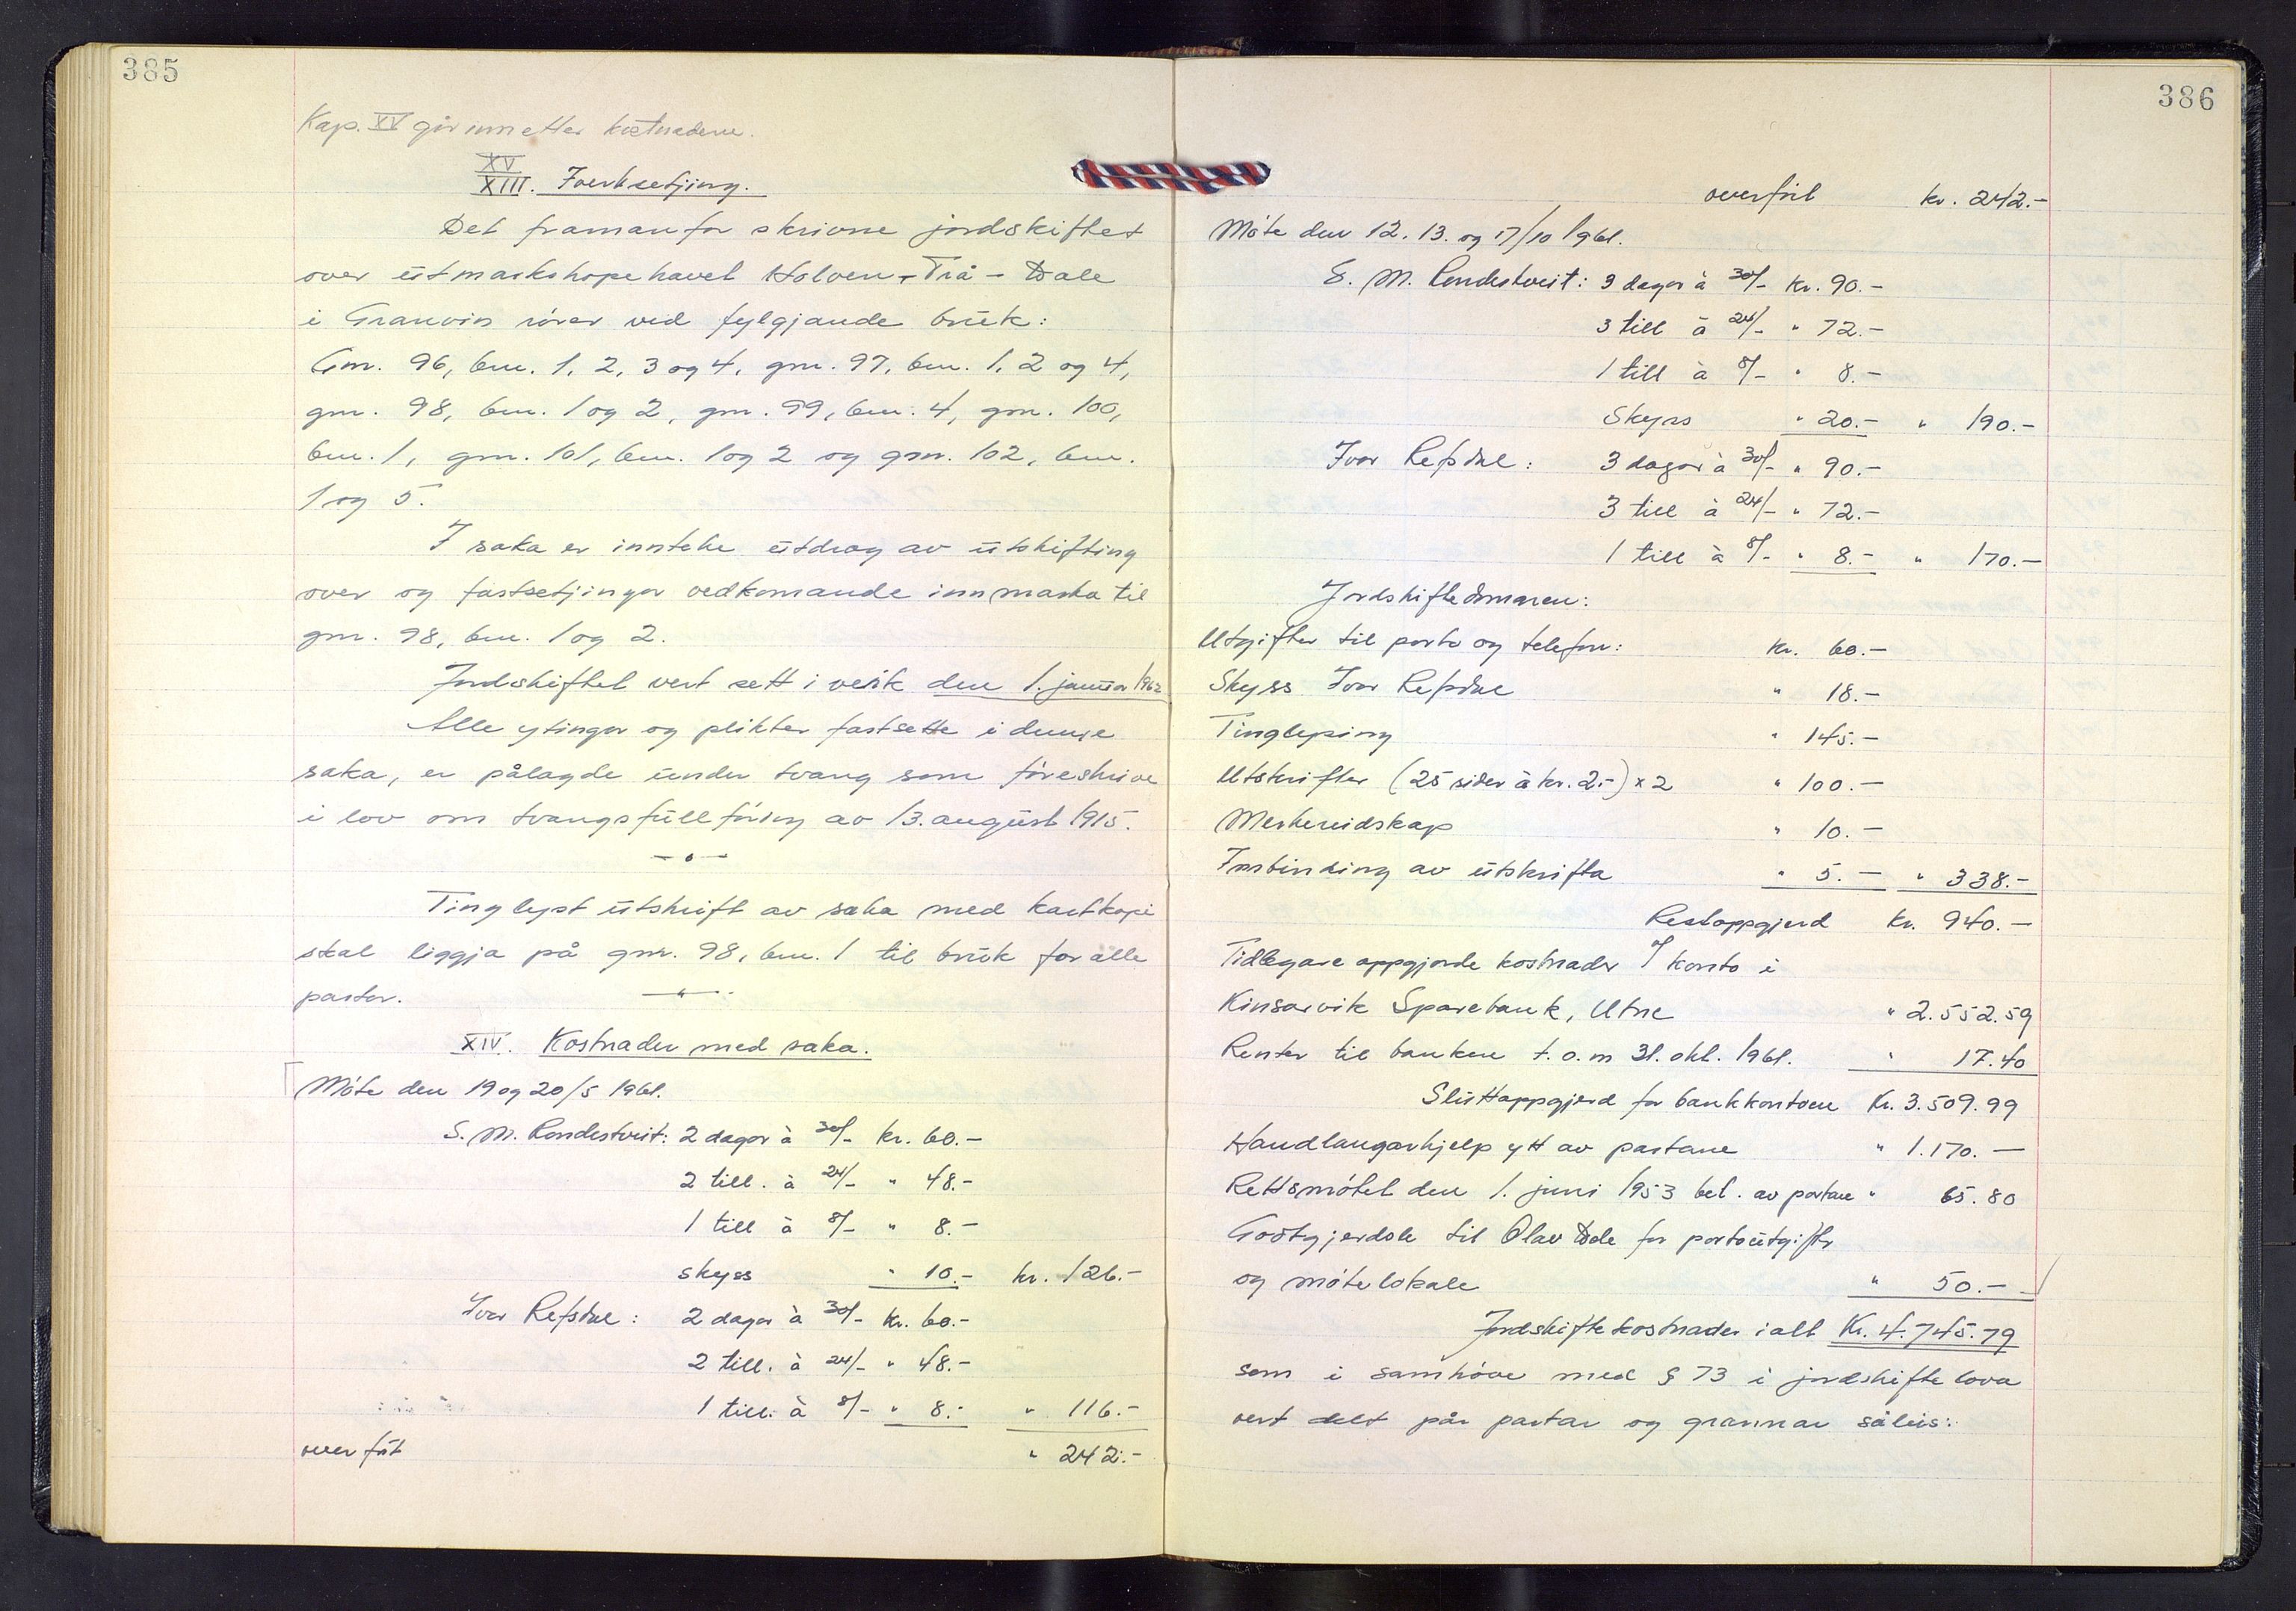 385
Kap. XV går inn etter kostnadene.
XV
XIII. Iverksetjing.
Det framanfor skrivne jordskiftet
over utmarkshopehavet Holven - Trå - Dale
i Granvin rører ved fylgjande bruk:
Gnr. 96, bnr. 1, 2, 3 og 4, gnr. 97, bnr. 1, 2 og 4,
gnr. 98, bnr. 1 og 2, gnr. 99, bnr. 4, gnr. 100,
bnr. 1, gnr. 101, bnr. 1 og 2 og gnr. 102, bnr.
1 og 5.
I saka er innteke utdrag av utskifting
over og fastsetjingar vedkomande innmarka til
gnr. 98, bnr. 1 og 2.
Jordskiftet vert sett i verk den 1. januar 1962
Alle ytingar og plikter fastsette i denne
saka, er pålagde under tvang som føreskrive
i lov om tvangsfullføring av 13. august 1915.
—o—
Tinglyst utskrift av saka med kartkopi
skal liggja på gnr. 98, bnr. 1 til bruk for alle
partar. —"—
XIV. Kostnader med saka.
Møte den 19 og 20/5 1961.
S. M. Rondestveit: 2 dagar à 30/- kr. 60.-
2 till. à 24/- " 48.-
1 till à 8/- " 8.-
skyss " 10.- kr. 126.-
Ivar Refsdal: 2 dagar à 30/- kr. 60.-
2 till. à 24/- " 48.-
1 till. à 8/- " 8.- " 116.-
overført " 242.-
386
overført kr. 242.-
Møte den 12. 13. og 17/10 1961.
S. M. Rondestveit: 3 dagar à 30/- kr. 90.-
3 till à 24/- " 72.-
1 till à 8/- " 8.-
Skyss " 20.- " 190.-
Ivar Refsdal: 3 dagar à 30/- " 90.-
3 till à 24/- " 72.-
1 till à 8/- " 8.- " 170.-
Jordskiftedomaren:
Utgifter til porto og telefon: kr. 60.-
Skyss Ivar Refsdal " 18.-
Tinglysing " 145.-
Utskrifter (25 sider à kr. 2.-) x 2 " 100.-
Merkereidskap " 10.-
Innbinding av utskrifta " 5.- " 338.-
Restoppgjerd kr. 940.-
Tidlegare oppgjorde kostnader o/ konto i
Kinsarvik Sparebank, Utne " 2.552.59
Renter til banken t.o.m 31. okt. 1961. " 17.40
Sluttoppgjerd for bankkontoen Kr. 3.509.99
Handlangarhjelp ytt av partane " 1.170.-
Rettsmøtet den 1. juni 1953 bet. av partane " 65.80
Godtgjerdsle til Olav Dale for portoutgifter
og møtelokale " 50.-
Jordskiftekostnader i alt Kr. 4.745.79
som i samhøve med § 73 i jordskiftelova
vert delt på partar og grannar såleis: